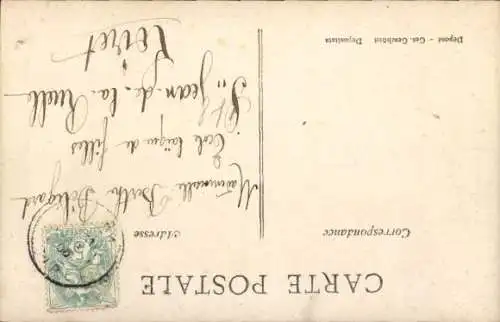 CARTE POSTALE
Correspondance
Adresse
Mademoiselle Berthe
École laïque de filles
St Jean-de-la-Ruelle
Loiret
Dépost - Ges. Geschützt Deponirt